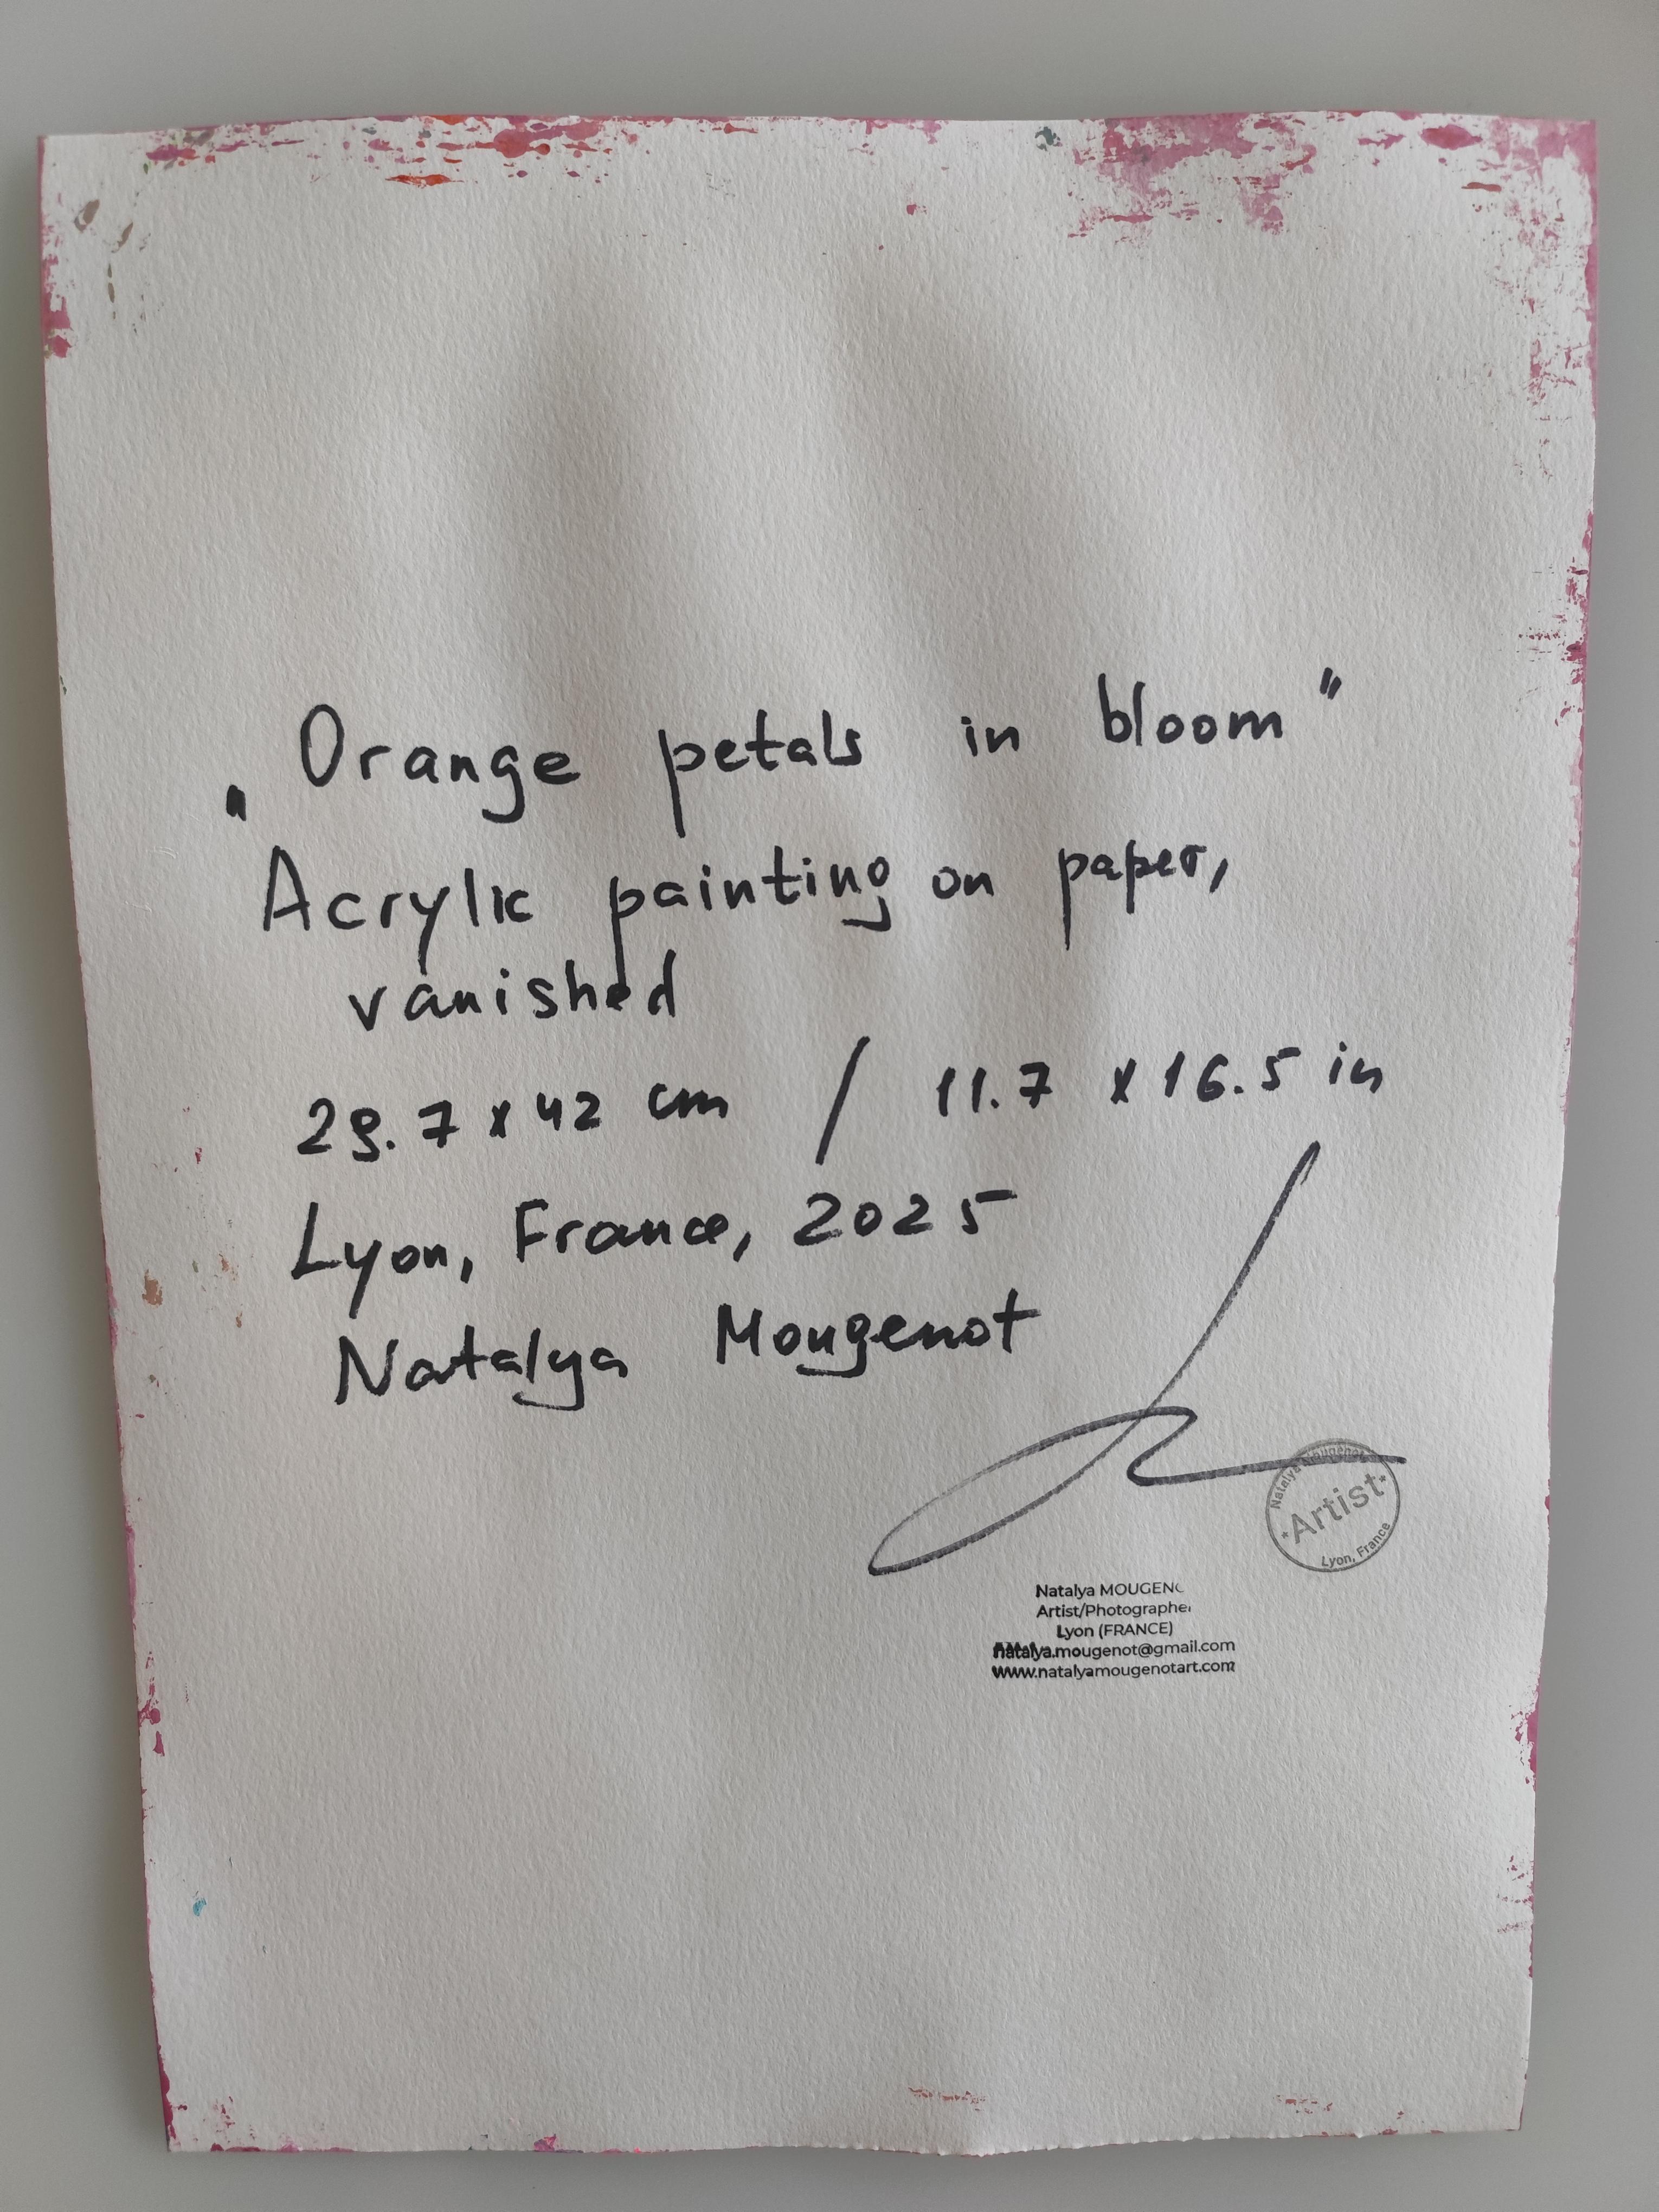 „Orange petals in bloom"
Acrylic painting on paper,
vanished
29.7 x 42 cm / 11.7 x 16.5 in
Lyon, France, 2025
Natalya Mougenot
Natalya Mougenot
*Artist*
Lyon, France
Natalya MOUGENO
Artist/Photographer
Lyon (FRANCE)
natalya.mougenot@gmail.com
www.natalyamougenotart.com